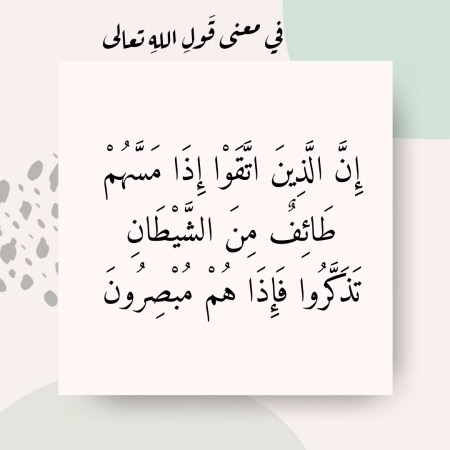 في معنى قَولِ اللهِ تعالى
إِنَّ الَّذِينَ اتَّقَوْا إِذَا مَسَّهُمْ
طَائِفٌ مِنَ الشَّيْطَانِ
تَذَكَّرُوا فَإِذَا هُمْ مُبْصِرُونَ